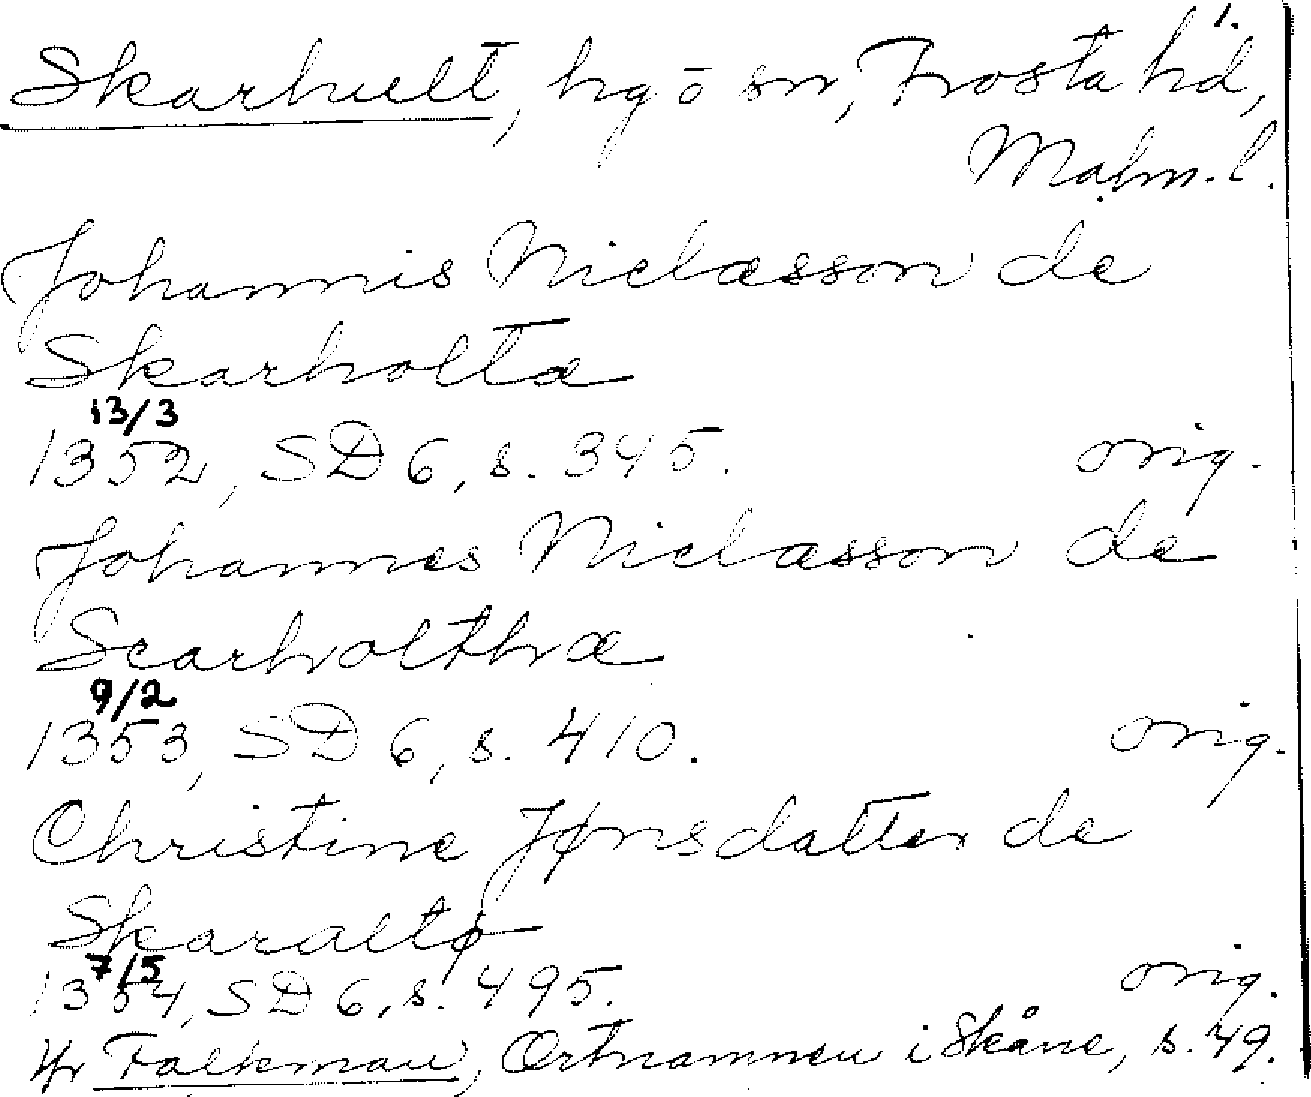 1.
Skarhult, hg o sn, Frosta hd,
Malm. l.
Johannis Niclæsson de
Skarholta
13/3
1352, SD 6, s. 345. orig.
Johannes Niclæsson de
Scarholthæ
9/2
1353, SD 6, s. 410. orig.
Christine Jønsdatter de
Skaraltø
7/5
1354, SD 6, s. 495. orig.
Falkman, Ortnamnen i Skåne, s. 49.